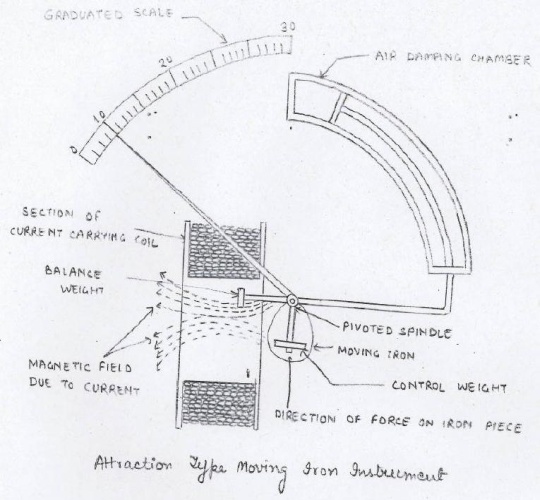 GRADUATED SCALE
30
20
10
0
AIR DAMPING CHAMBER
SECTION OF
CURRENT CARRYING COIL
BALANCE
WEIGHT
MAGNETIC FIELD
DUE TO CURRENT
PIVOTED SPINDLE
MOVING IRON
CONTROL WEIGHT
DIRECTION OF FORCE ON IRON PIECE
Attraction Type Moving Iron Instrument